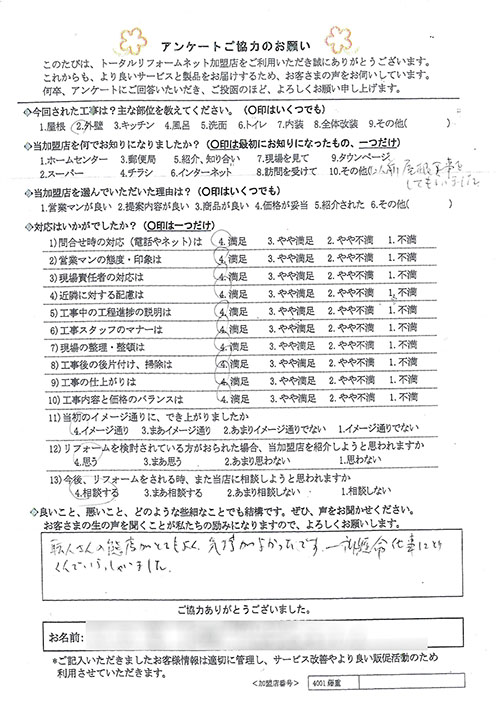 アンケートご協力のお願い
このたびは、トータルリフォームネット加盟店をご利用いただき誠にありがとうございます。
これからも、より良いサービスと製品をお届けするため、お客さまの声をお伺いしています。
何卒、アンケートにご回答いただき、ご投函のほど、よろしくお願い申し上げます。
◇今回された工事は？主な部位を教えてください。（〇印はいくつでも）
1.屋根 2.外壁 3.キッチン 4.風呂 5.洗面 6.トイレ 7.内装 8.全体改装 9.その他( )
◇当加盟店を何でお知りになりましたか？（〇印は最初にお知りになったもの、一つだけ）
1.ホームセンター 3.郵便局 5.紹介、知り合い 7.現場を見て 9.タウンページ
2.スーパー 4.チラシ 6.インターネット 8.訪問を受けて 10.その他( 前 屋根工事を
してもらいました
◇当加盟店を選んでいただいた理由は？（〇印はいくつでも）
1.営業マンが良い 2.提案内容が良い 3.商品が良い 4.価格が妥当 5.紹介された 6.その他( )
◇対応はいかがでしたか？（〇印は一つだけ）
1)問合せ時の対応（電話やネット）は 4.満足 3.やや満足 2.やや不満 1.不満
2)営業マンの態度・印象は 4.満足 3.やや満足 2.やや不満 1.不満
3)現場責任者の対応は 4.満足 3.やや満足 2.やや不満 1.不満
4)近隣に対する配慮は 4.満足 3.やや満足 2.やや不満 1.不満
5)工事中の工程進捗の説明は 4.満足 3.やや満足 2.やや不満 1.不満
6)工事スタッフのマナーは 4.満足 3.やや満足 2.やや不満 1.不満
7)現場の整理・整頓は 4.満足 3.やや満足 2.やや不満 1.不満
8)工事後の後片付け、掃除は 4.満足 3.やや満足 2.やや不満 1.不満
9)工事の仕上がりは 4.満足 3.やや満足 2.やや不満 1.不満
10)工事内容と価格のバランスは 4.満足 3.やや満足 2.やや不満 1.不満
11)当初のイメージ通りに、でき上がりましたか
4.イメージ通り 3.まあイメージ通り 2.あまりイメージ通りでない 1.イメージ通りでない
12)リフォームを検討されている方がおられた場合、当加盟店を紹介しようと思われますか
4.思う 3.まあ思う 2.あまり思わない 1.思わない
13)今後、リフォームをされる時、また当店に相談しようと思われますか
4.相談する 3.まあ相談する 2.あまり相談しない 1.相談しない
◇良いこと、悪いこと、どのような些細なことでも結構です。ぜひ、声をお聞かせください。
お客さまの生の声を聞くことが私たちの励みになりますので、よろしくお願いします。
職人さんの態度がとてもよく気持がよかったです。一所懸命仕事にとり
くんでいらっしゃいました。
ご協力ありがとうございました。
お名前:
*ご記入いただきましたお客様情報は適切に管理し、サービス改善やより良い販促活動のため
利用させていただきます。
<加盟店番号> 4001 藤重